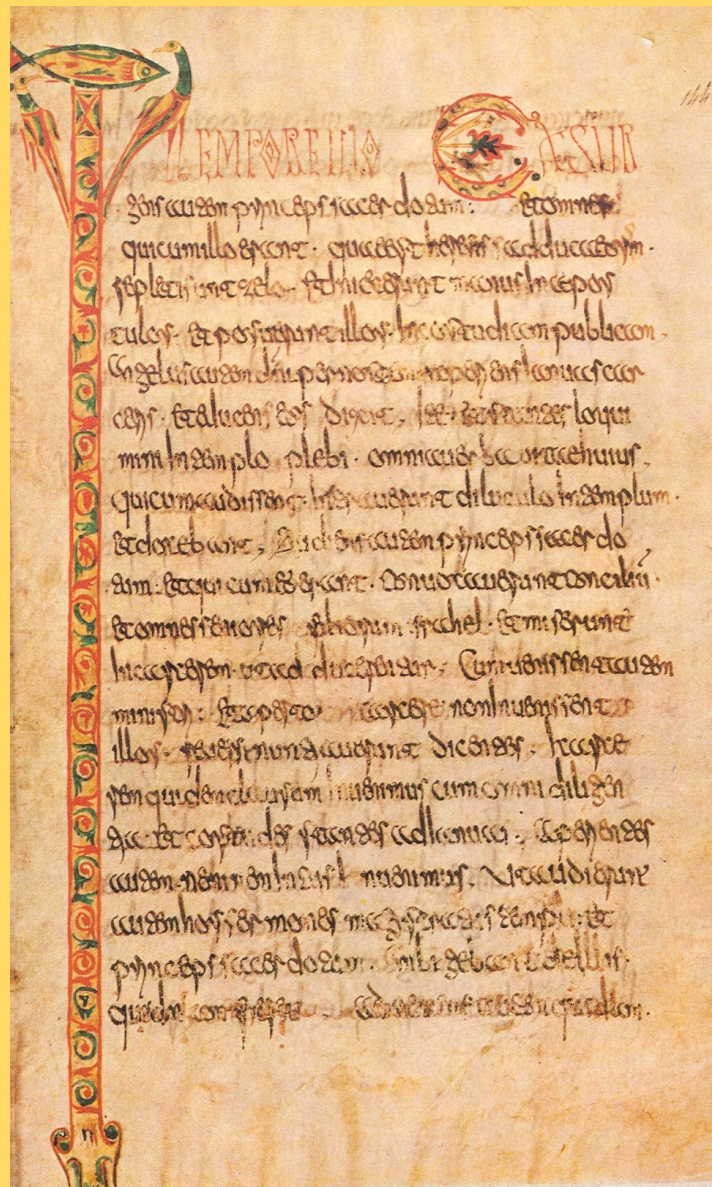 144
IN TEMPORE ILLO EXSUR
gens autem princeps sacerdotum: et omnes
qui cum illo erant. quae est heresis
repleti sunt zelo. et iniecerunt manus in apos
tulos. et posuerunt illos in custodiam publicam.
Angelus autem dni per noctem aperiens ianuas car
ceris. et educens eos dixit. Ite et stantes loqui
mini in templo plebi. omnia verba vitae huius.
qui cum audissent. intraverunt diluculo in templum.
et docebant. autem princeps sacerdo
tum. et qui cum eo erant. convocaverunt conciliū
et omnes seniores filiorum israhel. et miserunt
in carcerem. ut adducerentur. Cum venissent autem
ministri: et aperto carcere non invenissent
illos. reversi nuntiaverunt dicentes. carce
rem quidem clausum invenimus cum omni diligen
tia et custodes stantes ad ianuas. Aperientes
autem neminem intus invenimus. Ut audierunt
autem hos sermones magistratus templi. et
princeps sacerdotum. ambigebant de illis.
quidnam fieret. autem quidam.